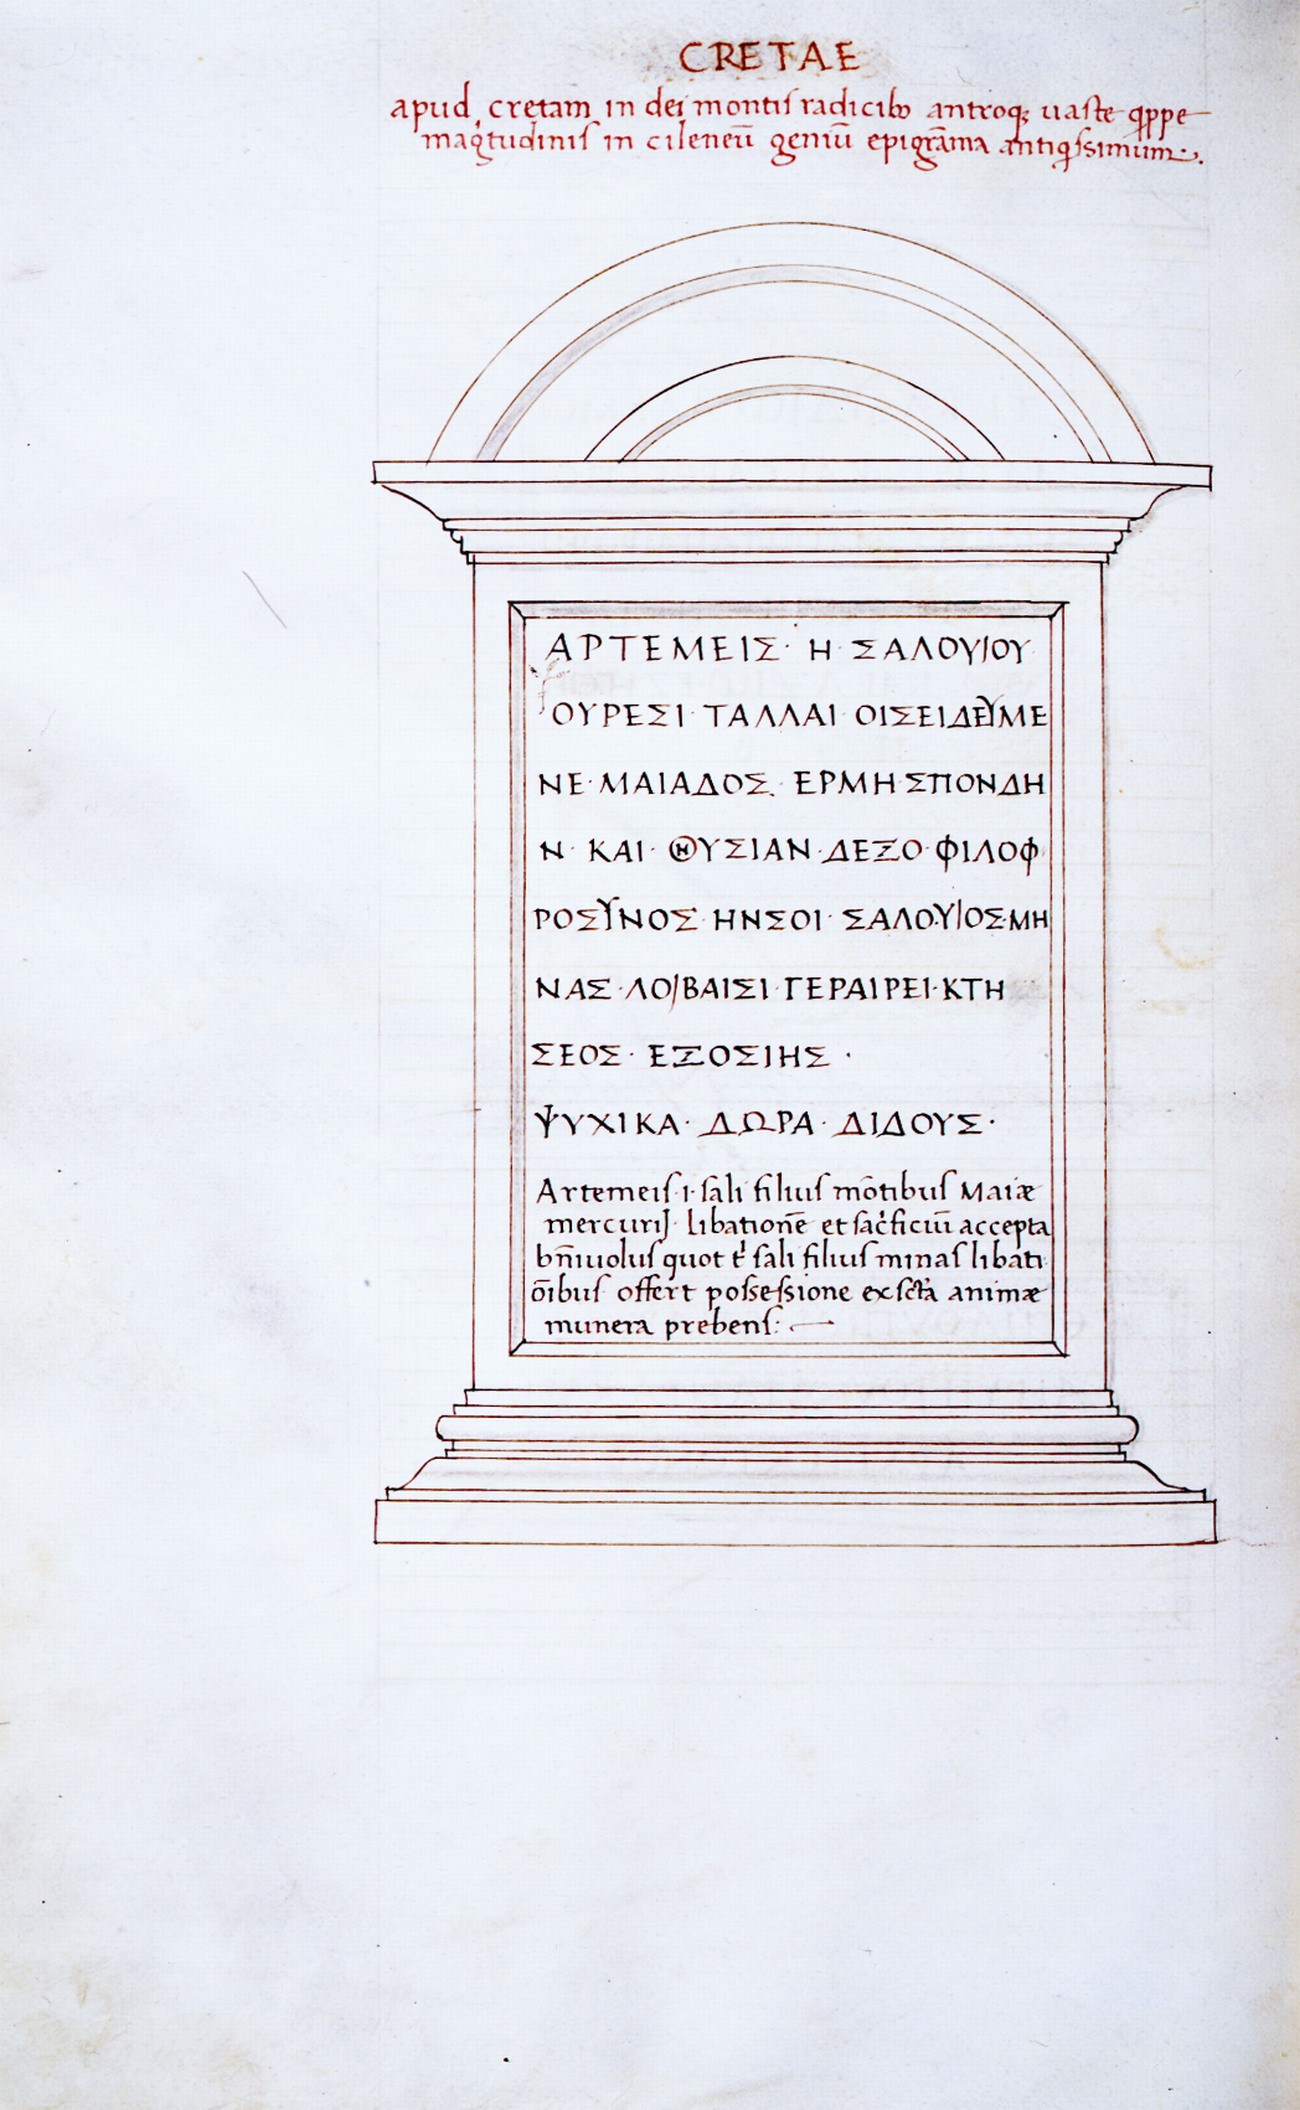 CRETAE
apud cretam in dei montis radicib antroq; uaste qppe
magtudinis in cileneū geniū epigrāma antiqssimum
ΑΡΤΕΜΕΙΣ· Η· ΣΑΛΟΥΙΟΥ
ΟΥΡΕΣΙ· ΤΑΛΛΑΙ· ΟΙΣΕΙΔΕΥΜΕ
ΝΕ· ΜΑΙΑΔΟΣ· ΕΡΜΗ·ΣΠΟΝΔΗ
Ν· ΚΑΙ· ΘΥΣΙΑΝ·ΔΕΞΟ·ΦΙΛΟΦ
ΡΟΣΥΝΟΣ· ΗΝΣΟΙ· ΣΑΛΟΥΙΟΣ·ΜΗ
ΝΑΣ·ΛΟΙΒΑΙΣΙ·ΓΕΡΑΙΡΕΙ·ΚΤΗ
ΣΕΟΣ· ΕΞΟΣΙΗΣ·
ΨΥΧΙΚΑ· ΔΩΡΑ· ΔΙΔΟΥΣ·
Artemeis·i·sali filius mōtibus Maiæ
mercurij· libationē et sacficiū accepta
bn̄iuolus quot t sali filius minas libati
ōibus offert possessione ex scta animæ
munera prebens: